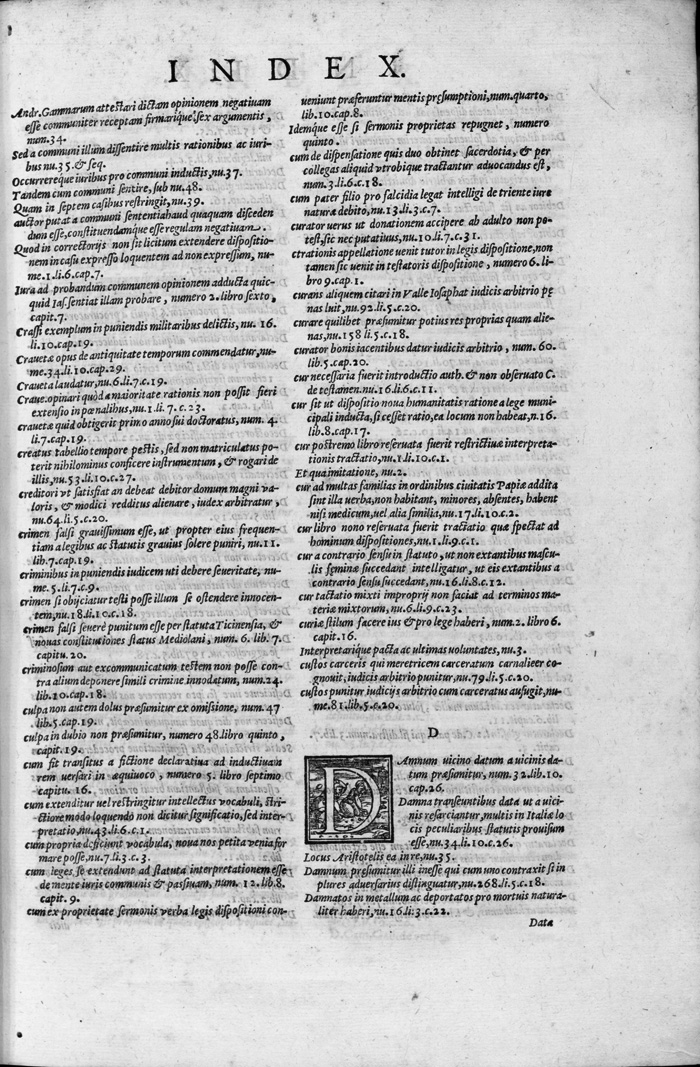 INDEX.
Andr. Gammarum attestari dictam opinionem negatiuam
esse communiter receptam firmarique sex argumentis,
num.34.
Sed a communi illum dissentire multis rationibus ac iuri-
bus nu.35.& seq.
Occurrereque iuribus pro communi inductis, nu.37.
Tandem cum communi sentire, sub nu.48.
Quam in septem casibus restringit, nu.39.
auctor putat a communi sententia haud quaquam disceden
dum esse, constituendamque esse regulam negatiuam.
Quod in correctorijs non sit licitum extendere dispositio-
nem in casu expresso loquentem ad non expressum, nu-
me.1.li.6.cap.7.
Iura ad probandum communem opinionem adducta quic-
quid Ias. sentiat illam probare, numero 2. libro sexto,
capit.7.
Crassi exemplum in puniendis militaribus delictis, nu. 16.
li.10.cap.19.
Crauetæ opus de antiquitate temporum commendatur, nu-
me.34.li.10.cap.29.
Craueta laudatur, nu.6.li.7.c.19.
Craue. opinari quòd a maioritate rationis non possit fieri
extensio in pœnalibus, nu.1.li. 7.c.23.
crauetæ quid obtigerit primo anno sui doctoratus, num. 4.
li.7.cap.19.
creatus tabellio tempore pestis, sed non matriculatus po-
terit nihilominus conficere instrumentum, & rogari de
illis, nu.53.li.10.c.27.
creditori vt satisfiat an debeat debitor domum magni va-
loris, & modici redditus alienare, iudex arbitratur,
nu.64.li.5.c.20.
crimen falsi grauissimum esse, ut propter eius frequen-
tiam a legibus ac statutis grauius solere puniri, nu.11.
lib.7.cap.19.
criminibus in puniendis iudicem uti debere seueritate, nu-
me.5.li.7.c.9.
crimen si obijciatur testi posse illum se ostendere innocen-
tem, nu.18.li.10.c.18.
crimen falsi seuerè punitum esse per statuta Ticinensia, &
nouas constitutiones status Mediolani, num.6. lib.7.
capitu.20.
criminosum aut excommunicatum testem non posse con-
tra alium deponere simili crimine innodatum, num.24.
lib.10.cap.18.
culpa non autem dolus præsumitur ex omissione, num.47
lib.5.cap.19.
culpa in dubio non præsumitur, numero 48.libro quinto,
capit.19.
cum fit transitus a fictione declaratiua ad inductiuam
rem uersari in æquiuoco, numero 5. libro septimo
capitu. 16.
cum extenditur uel restringitur intellectus vocabuli, stri-
ctiore modo loquendo non dicitur significatio, sed inter-
pretatio, nu.43.li.6.c.1.
cum propria deficiunt vocabula, noua nos petita venia for
mare posse, nu.7.li.3.c.3.
cum leges se extendunt ad statuta interpretationem esse
de mente iuris communis & passiuam, num. 12.lib.8.
capit. 9.
cum ex proprietate sermonis verba legis dispositioni con-
ueniunt præferuntur mentis præsumptioni, num.quarto,
lib.10.cap.8.
Idemque esse si sermonis proprietas repugnet, numero
quinto.
cum de dispensatione quis duo obtinet sacerdotia, & per
collegas aliquid vtrobique tractantur aduocandus est,
num.3.li.6.c.18.
cum pater filio pro falcidia legat intelligi de triente iure
naturæ debito, nu.13.li.3.c.7.
curator uerus ut donationem accipere ab adulto non po-
test, sic nec putatiuus, nu.10.li.7.c.31.
ctrationis appellatione uenit tutor in legis dispositione, non
tamen sic uenit in testatoris dispositione, numero 6.li-
bro 9.cap.1.
curans aliquem citari in Valle Iosaphat iudicis arbitrio pę
nas luit, nu.92.li.5.c.20.
curare quilibet præsumitur potius res proprias quam alie-
nas, nu.158 li.5.c.18.
curator bonis iacentibus datur iudicis arbitrio, num. 60.
lib.5.cap.20.
cur necessaria fuerit introductio auth. & non obseruato C.
de testamen.nu.16.li.6.c.11.
cur sit ut dispositio noua humanitatis ratione a lege muni
cipali inducta, si cesset ratio, ea locum non habeat, n.16.
lib.8.cap.17.
cur postremo libro reseruata fuerit restrictiuæ interpreta-
tionis tractatio, nu.1.li.10.c.1.
Et qua imitatione, nu.2.
cur ad multas familias in ordinibus ciuitatis Papiæ addita
sint illa uerba, non habitant, minores, absentes, habent
nisi medicum, uel alia similia, nu.17.li.10.c.2.
cur libro nono reseruata fuerit tractatio quæ spectat ad
hominum dispositiones, nu.1.li.9.c.1.
cur a contrario sensu in statuto, ut non extantibus mascu-
lis feminæ succedant intelligatur, ut eis extantibus a
contrario sensu succedant, nu.16.li.8.c.12.
cur tactatio mixti improprij non faciat ad terminos ma-
teriæ mixtorum, nu.6.li.9.c.23.
curiæ stilum facere ius & pro lege haberi, num.2. libro 6.
capit.16.
Interpretarique pacta ac ultimas voluntates, nu.3.
custos carceris qui meretricem carceratam carnaliter co-
gnouit, iudicis arbitrio punitur, nu.79.li.5.c.20.
custos punitur iudicijs arbitrio cum carceratus aufugit, nu-
me.81.lib.5.c.20.
D
DAmnum uicino datum a uicinis da-
tum præsumitur, num.32.lib.10.
cap.26.
Damna transeuntibus data ut a uici-
nis resarciantur, multis in Italiæ lo
cis peculiaribus statutis prouisum
esse, nu.34.li.10.c.26.
Locus Aristotelis ea in re, nu.35.
Damnum præsumitur illi inesse qui cum uno contraxit si in
plures aduersarius distinguatur, nu.268.li.5.c.18.
Damnatos in metallum ac deportatos pro mortuis natura-
liter haberi, nu.16.li.3.c.22.
Data